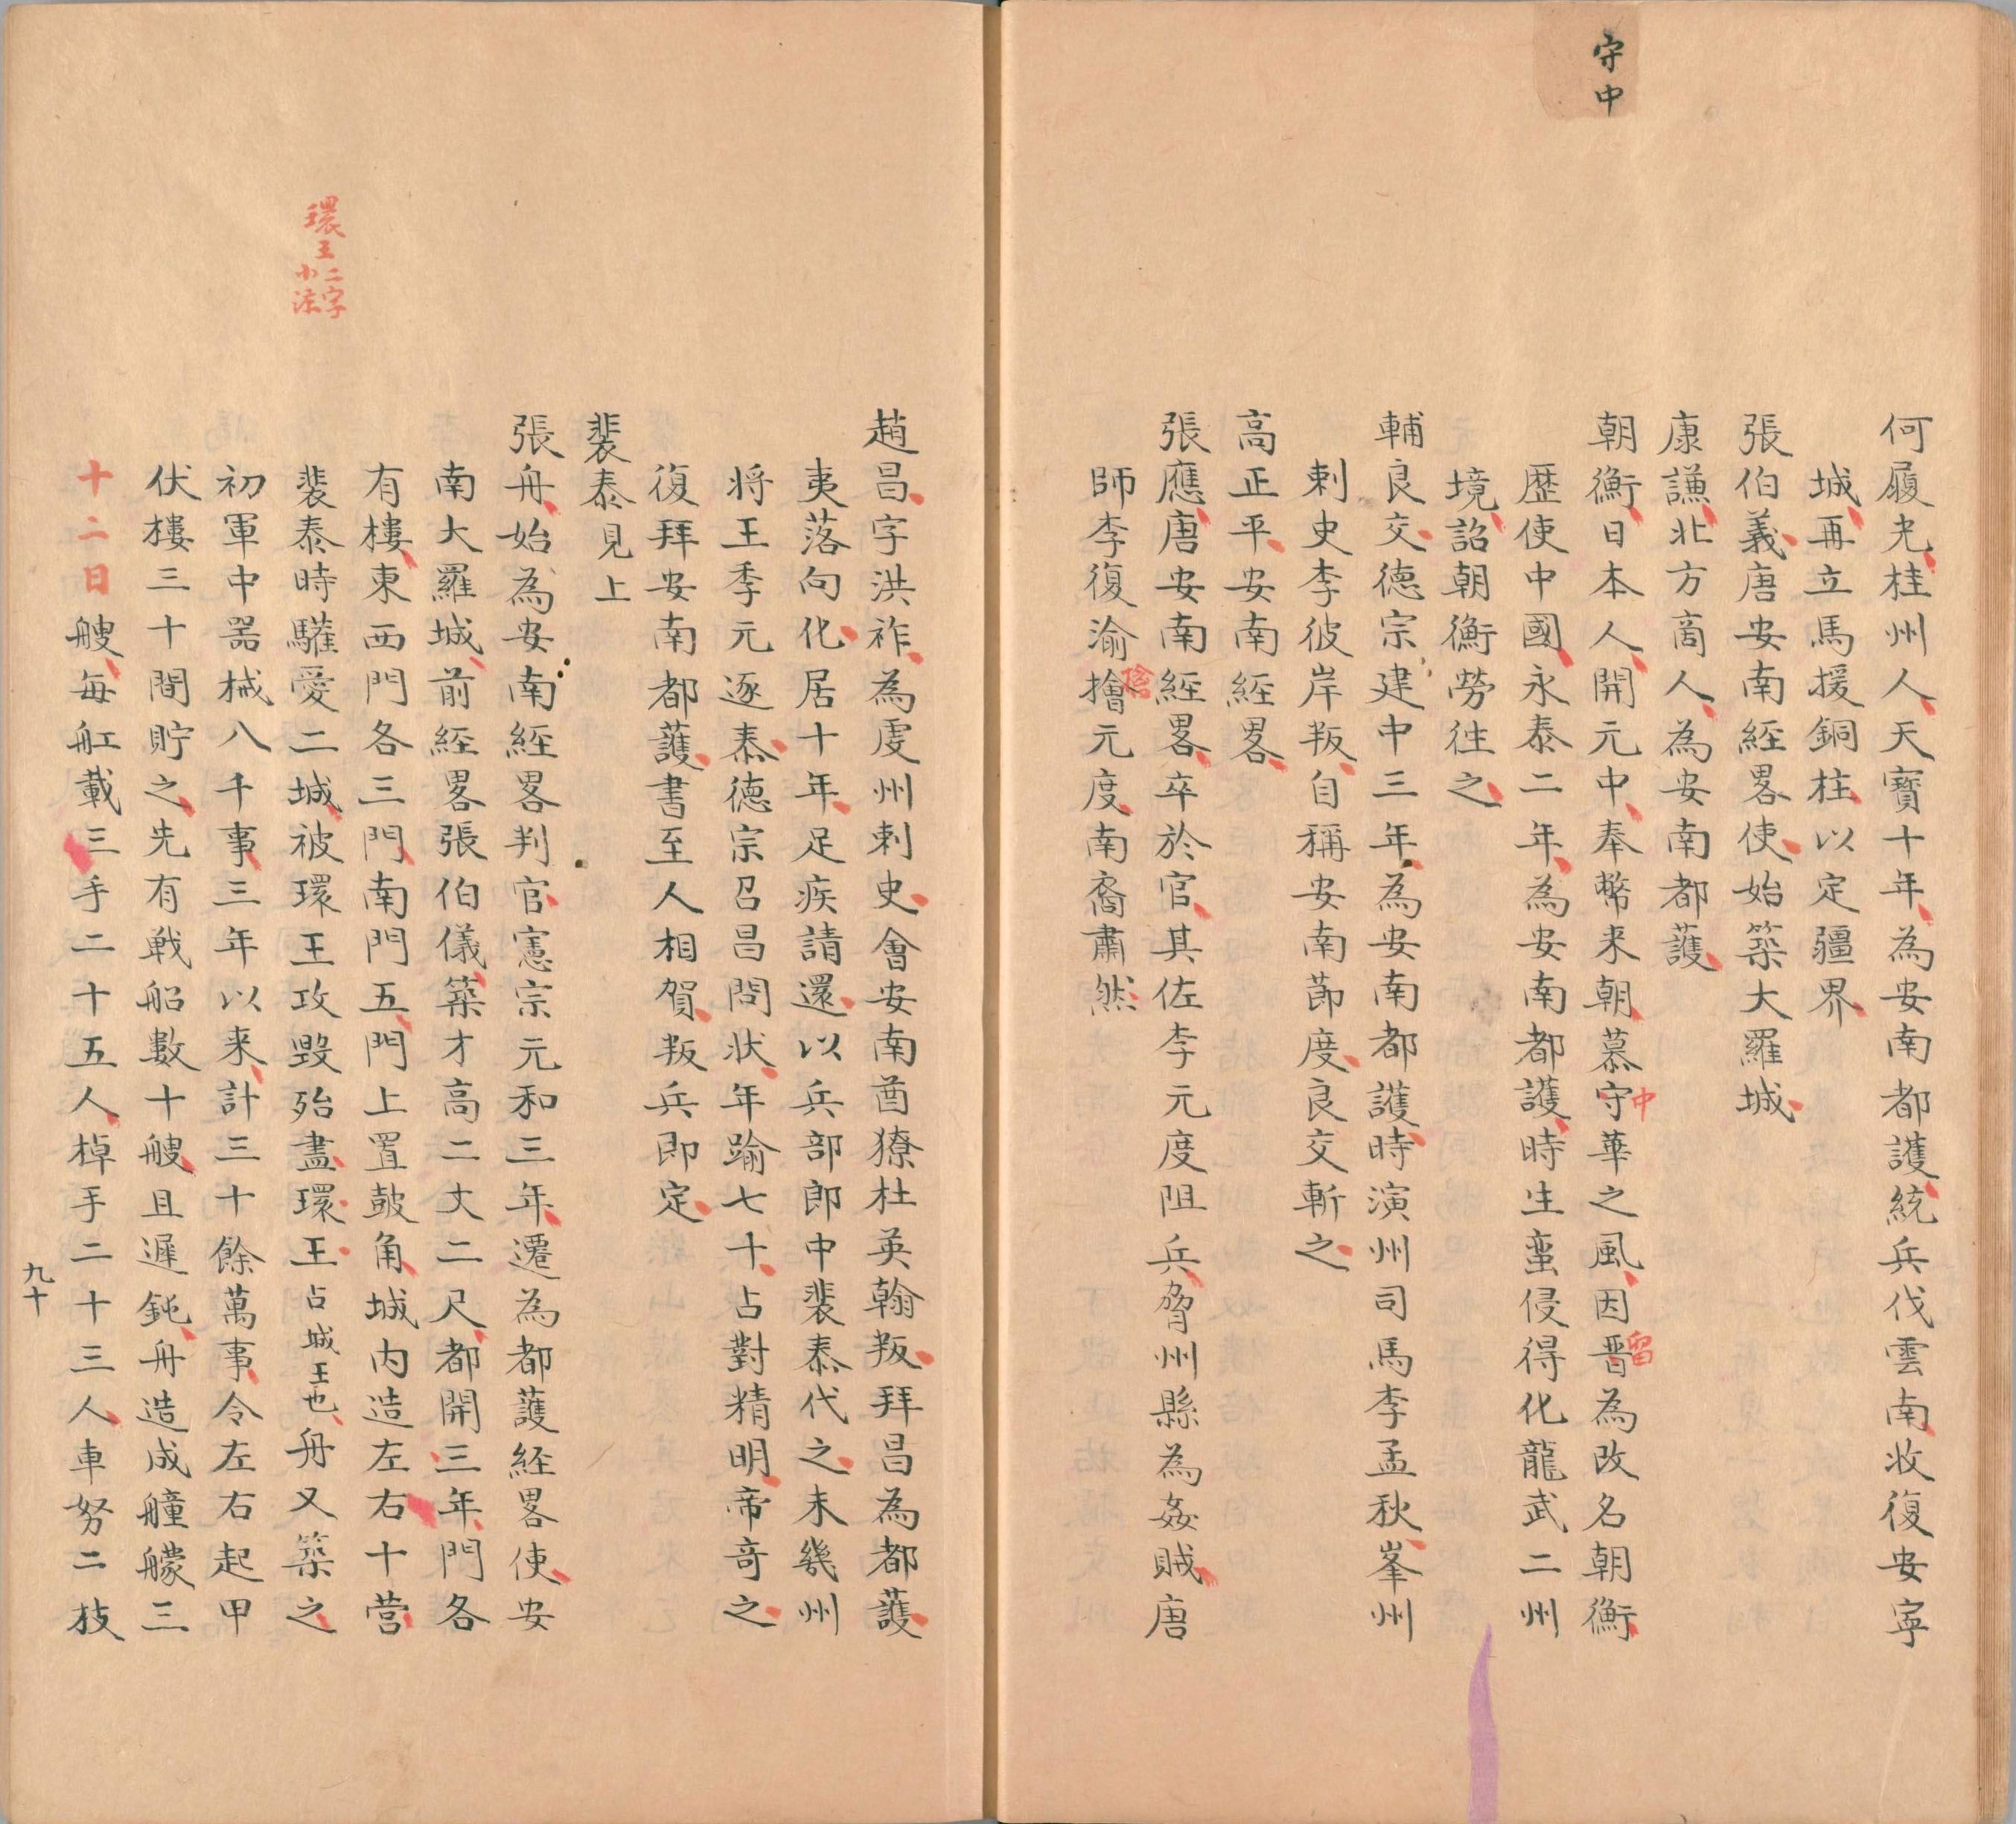 守中
何履光桂州人天寶十年為安南都護統兵伐雲南收復安寧
城再立馬援銅柱以定疆界
張伯義唐安南經畧使始築大羅城
康謙北方商人為安南都護
朝衡日本人開元中奉幣来朝慕守華之風因晋為改名朝衡
中
留
歷使中國永泰二年為安南都護時生蛮侵得化龍武二州
境詔朝衡勞徃之
輔良交德宗建中三年為安南都護時演州司馬李孟秋峯州
刺史李彼岸叛自稱安南節度良交斬之
高正平安南經畧
張應唐安南經畧卒於官其佐李元度阻兵脅州縣為姦賊唐
師李復渝擒元度南裔肅然
趙昌字洪祚為虔州刺史會安南酋獠杜英翰叛拜昌為都護
夷落向化居十年足疾請還以兵部郎中裴泰代之未幾州
将王季元逐泰德宗召昌問狀年踰七十占對精明帝奇之
復拜安南都護書至人相賀叛兵即定
裴泰見上
張舟始為安南經畧判官憲宗元和三年遷為都護經畧使安
南大羅城前經畧張伯儀築才高二丈二尺都開三年門各
有樓東西門各三門南門五門上置皷角城内造左右十营
環王二字小注
裴泰時驩愛二城被環王攻毀殆盡環王占城王也舟又築之
初軍中噐械八千事三年以来計三十餘萬事令左右起甲
伏樓三十間貯之先有戰船數十艘且遲鈍舟造成艟艨三
十二日艘每舡載三手二十五人棹手二十三人車努二枝
九十